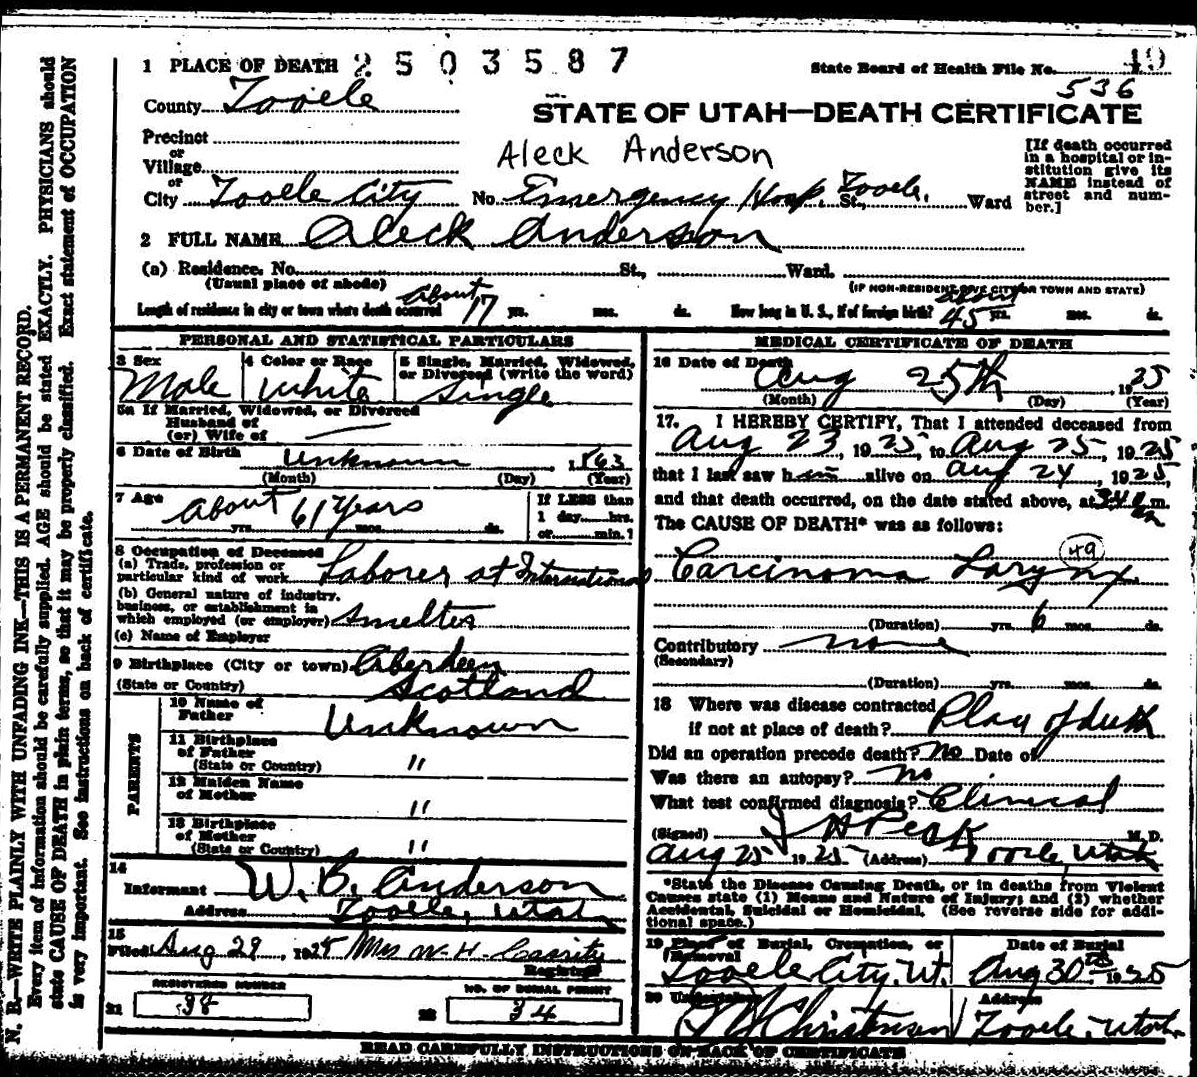 1 PLACE OF DEATH 2503587
State Board of Health File No. 49
536
County Tooele
STATE OF UTAH—DEATH CERTIFICATE
Precinct
or
Village
or
Aleck Anderson
[If death occurred in a hospital or institution give its NAME instead of street and number.]
City Tooele City No. Emergency Hosp. Tooele. St., Ward
2 FULL NAME Aleck Anderson
(a) Residence. No. St., Ward.
(Usual place of abode) (IF NON-RESIDENT GIVE CITY OR TOWN AND STATE)
Length of residence in city or town where death occurred About 17 yrs. mos. ds. How long in U. S., if of foreign birth? about 45 yrs. mos. ds.
PERSONAL AND STATISTICAL PARTICULARS
3 Sex Male
4 Color or Race White
5 Single, Married, Widowed, or Divorced (write the word) Single
5a If Married, Widowed, or Divorced
Husband of
(or) Wife of —
6 Date of Birth Unknown, 1863
(Month) (Day) (Year)
7 Age About 61 Years
yrs. mos. ds.
If LESS than
1 day, hrs.
or min.?
8 Occupation of Deceased
(a) Trade, profession or
particular kind of work Laborer at International
(b) General nature of industry,
business, or establishment in
which employed (or employer) Smelter
(c) Name of Employer
9 Birthplace (City or town) Aberdeen
(State or Country) Scotland
PARENTS
10 Name of
Father Unknown
11 Birthplace
of Father
(State or Country) "
12 Maiden Name
of Mother "
13 Birthplace
of Mother
(State or Country) "
14
Informant W. B. Anderson
Address Tooele, Utah
15
Filed Aug 29, 1925 Mrs W. H. Cassity
Registrar
REGISTERED NUMBER NO. OF BURIAL PERMIT
21 38 22 34
MEDICAL CERTIFICATE OF DEATH
16 Date of Death
Aug 25th, 1925
(Month) (Day) (Year)
17. I HEREBY CERTIFY, That I attended deceased from
Aug 23, 1925, to Aug 25, 1925
that I last saw him alive on Aug 24, 1925,
and that death occurred, on the date stated above, at 340 a m.
The CAUSE OF DEATH* was as follows:
49
Carcinoma Larynx
(Duration) yrs. 6 mos. ds.
Contributory none
(Secondary)
(Duration) yrs. mos. ds.
18 Where was disease contracted
if not at place of death? Place of death
Did an operation precede death? No Date of
Was there an autopsy? no
What test confirmed diagnosis? Clinical
(Signed) J H Peck M. D.
Aug 25 1925 (Address) Tooele, Utah
*State the Disease Causing Death, or in deaths from Violent
Causes state (1) Means and Nature of Injury; and (2) whether
Accidental, Suicidal or Homicidal. (See reverse side for addi-
tional space.)
19 Place of Burial, Cremation, or
Removal
Tooele City. Ut.
Date of Burial
Aug 30th 1925
20 Undertaker
Christensen
Address
Tooele, Utah.
READ CAREFULLY INSTRUCTIONS ON BACK OF CERTIFICATE
N. B.—WRITE PLAINLY WITH UNFADING INK—THIS IS A PERMANENT RECORD.
Every item of information should be carefully supplied. AGE should be stated EXACTLY. PHYSICIANS should
state CAUSE OF DEATH in plain terms, so that it may be properly classified. Exact statement of OCCUPATION
is very important. See instructions on back of certificate.